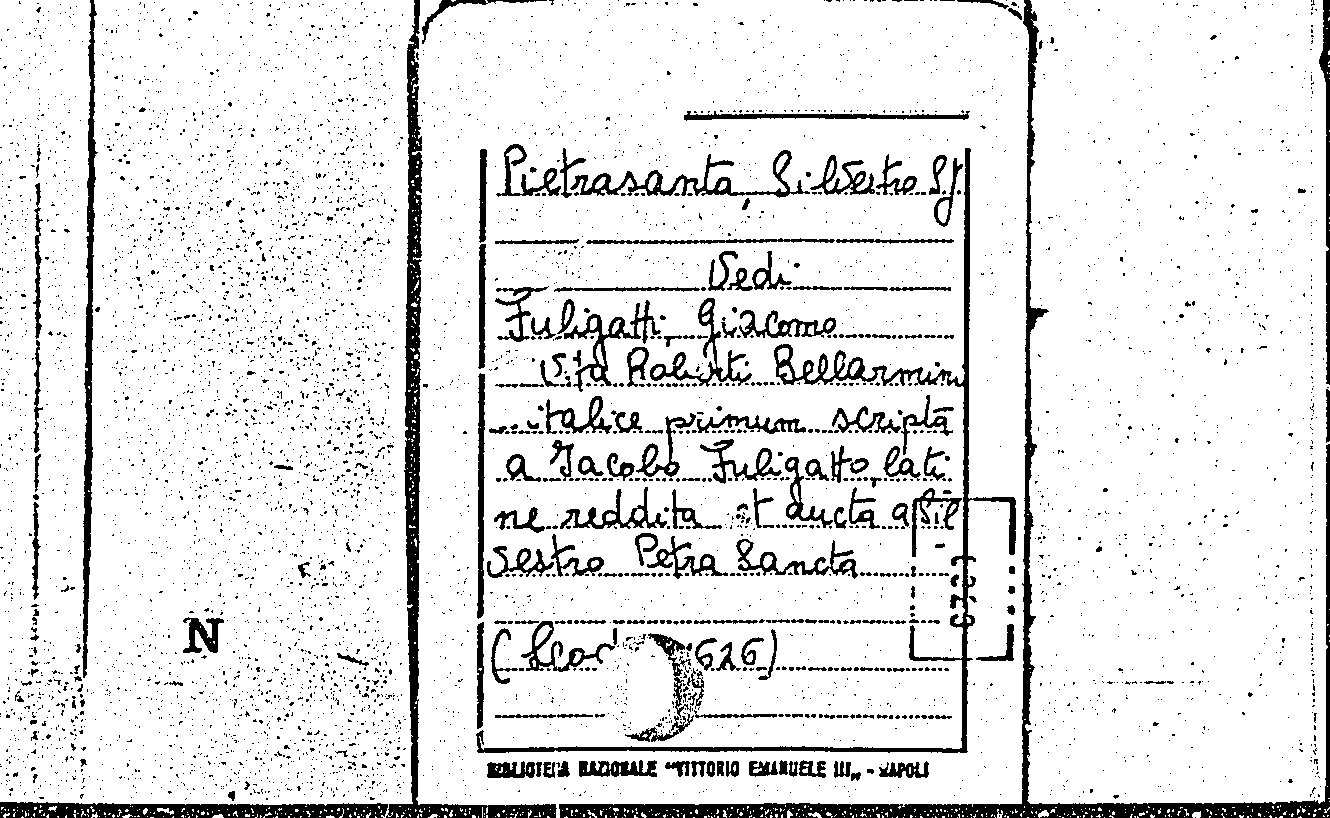 Pietrasanta, Silvestro S.J.
Vedi
Fuligatti, Giacomo
Vita Roberti Bellarmini
...italice primum scripta
a Jacobo Fuligatto, lati
ne reddita et aucta a Sil
vestro Petra Sancta
626)
BIBLIOTECA NAZIONALE "VITTORIO EMANUELE III„ - NAPOLI
N